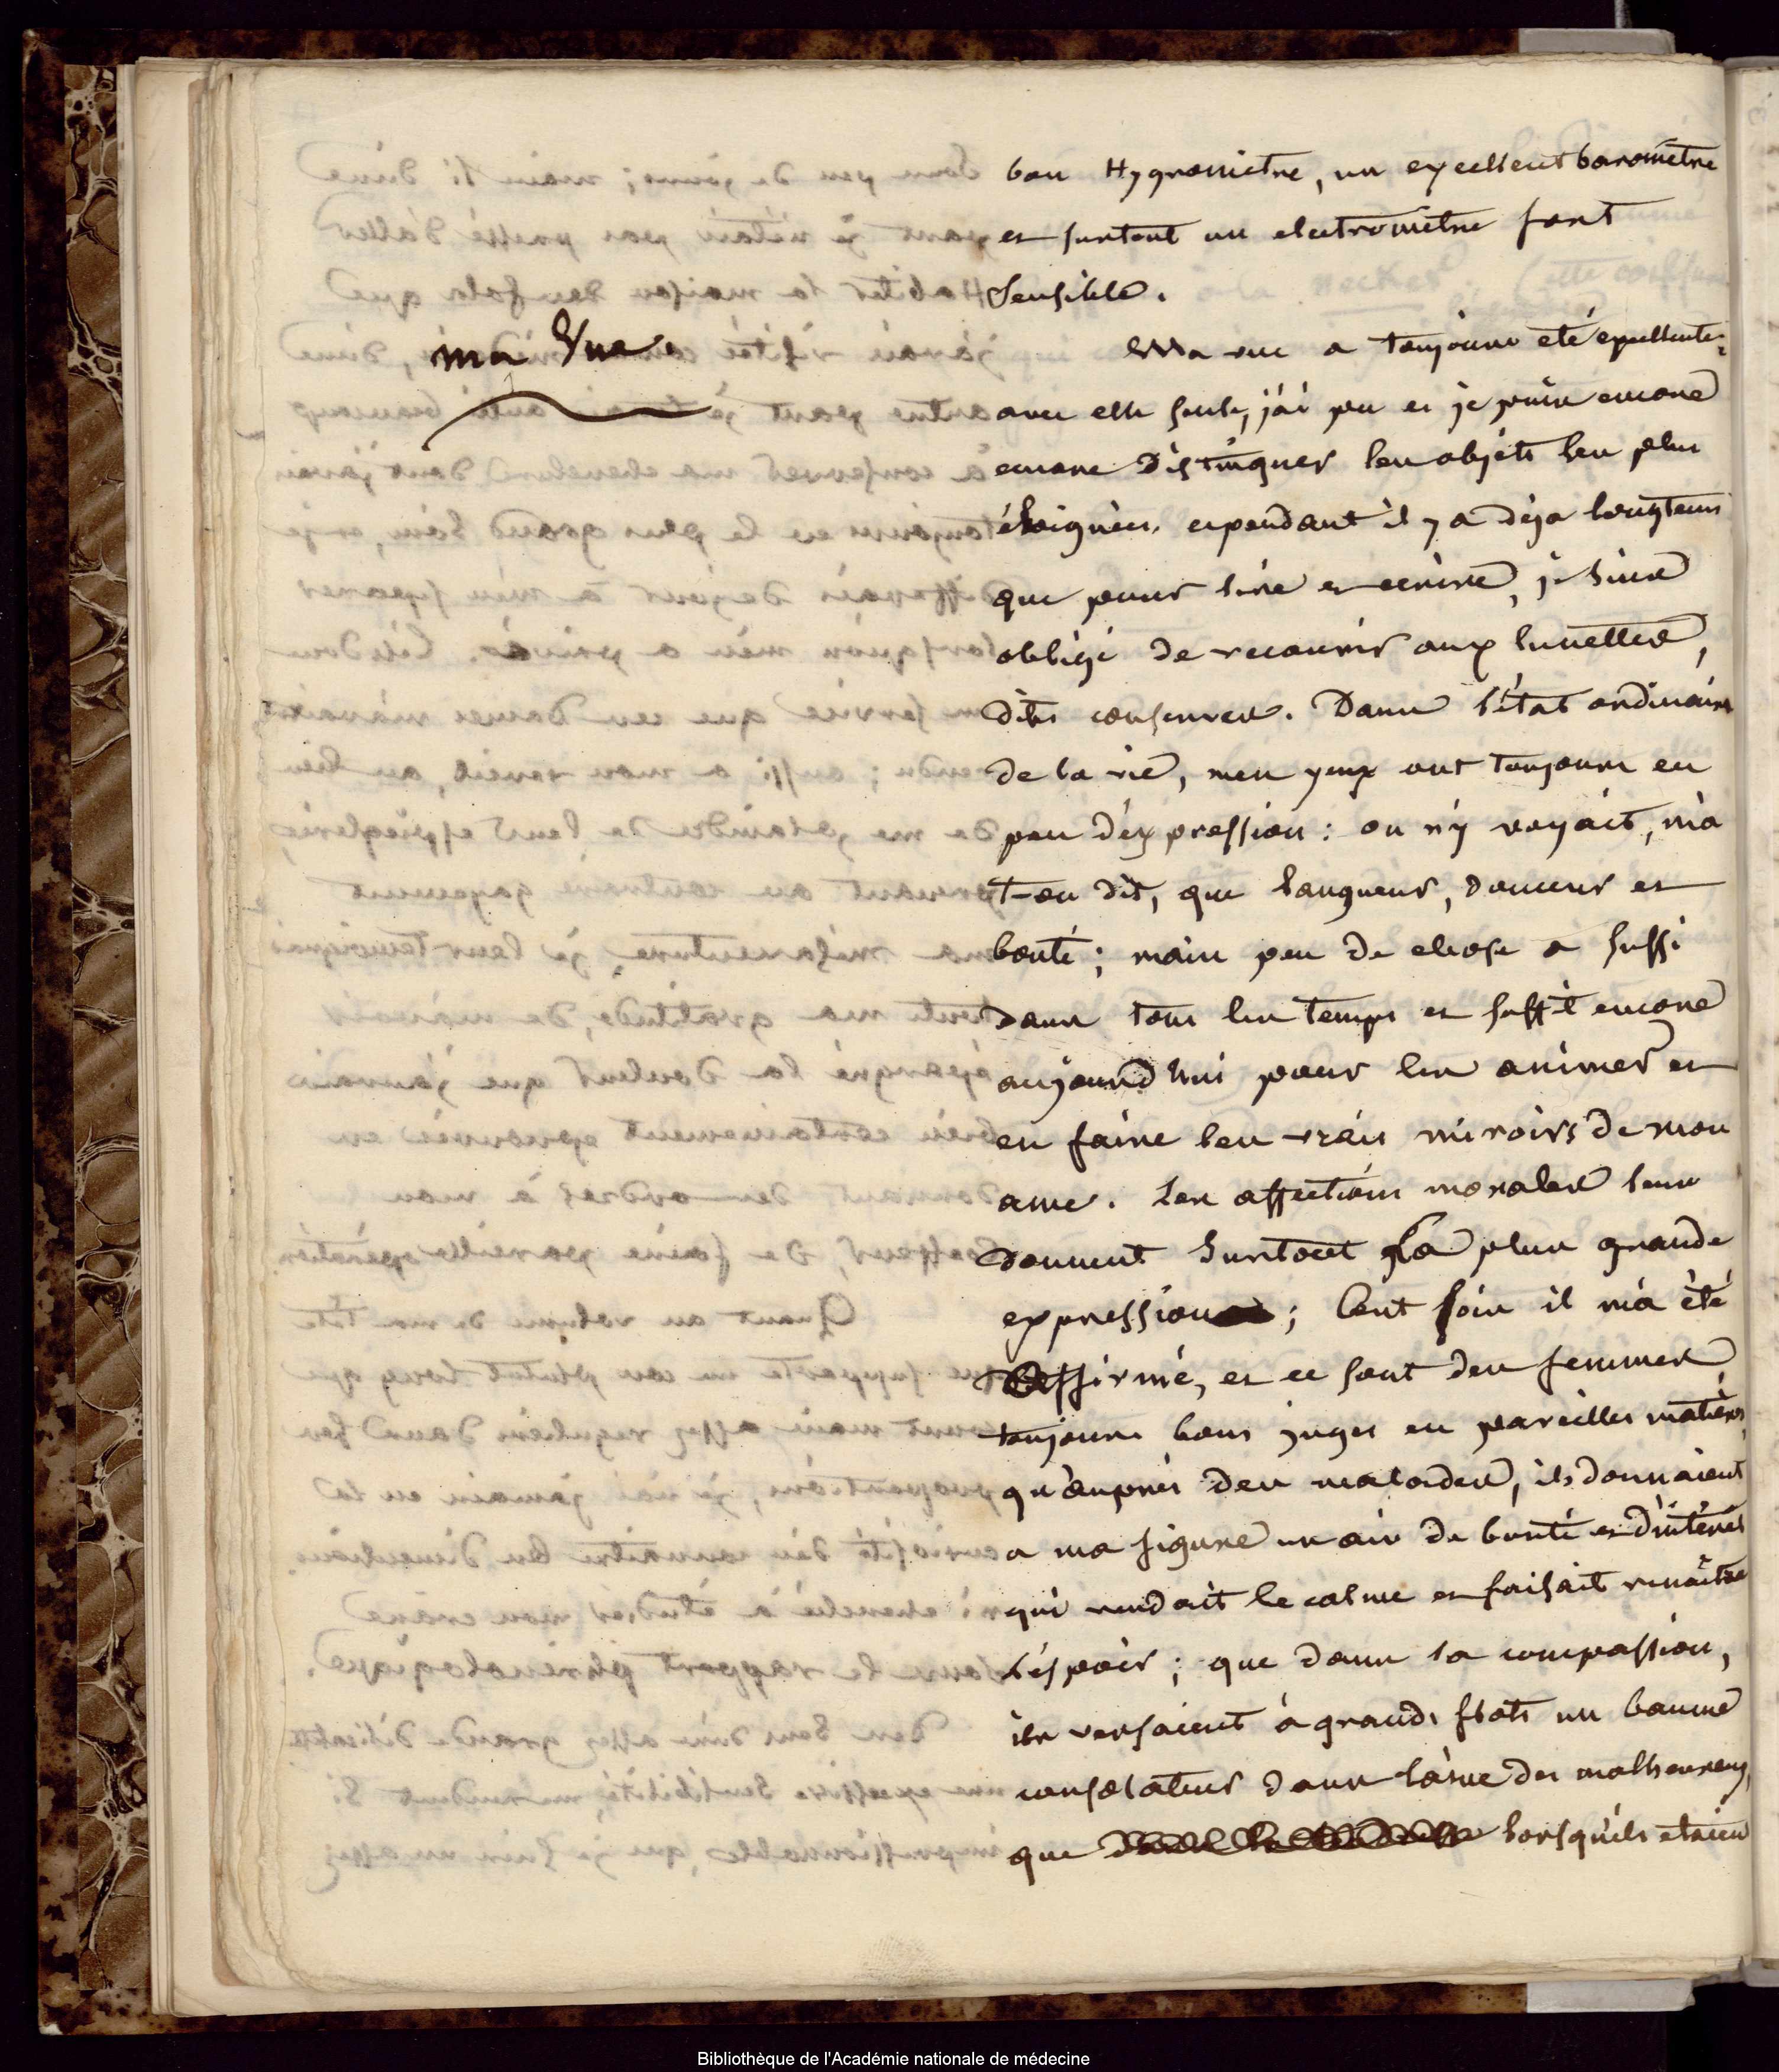 bon Hygrométre, un excellent barométre
et surtout un electrométre fort
sensible.
ma Vue.
Ma vue a toujours eté excellente;
avec elle seule, j'ai pu et je puis encore
encore distinguer les objets les plus
éloignés, cependant il y a déja longtems
que pour lire et ecrire, je suis
obligé de recourir aux lunettes,
dites conserves. Dans l'état ordinaire
de la vie, mes yeux ont toujours eu
peu d'expression : on n'y voyait, m'a
t-on dit, que langueur, douceur et
bonté ; mais peu de chose a suffi
dans tous les temps et suffit encore
aujourd'hui pour les animer et
en faire les vrais miroirs de mon
ame. Les affections morales leur
donnent surtout la plus grande
expression ; Cent fois il m'a été
affirmé, et ce sont des femmes
toujours bons juges en pareilles matières,
qu'auprès des malades, ils donnaient
a ma figure un air de bonté et d'intérêt
qui rendait le calme et faisait renaître
l'espoir ; que dans la compassion,
ils versaient à grands flots un baume
consolateur dans l'àme des malheureux,
que lorsqu'ils etaien
Bibliothèque de l'Académie nationale de médecine